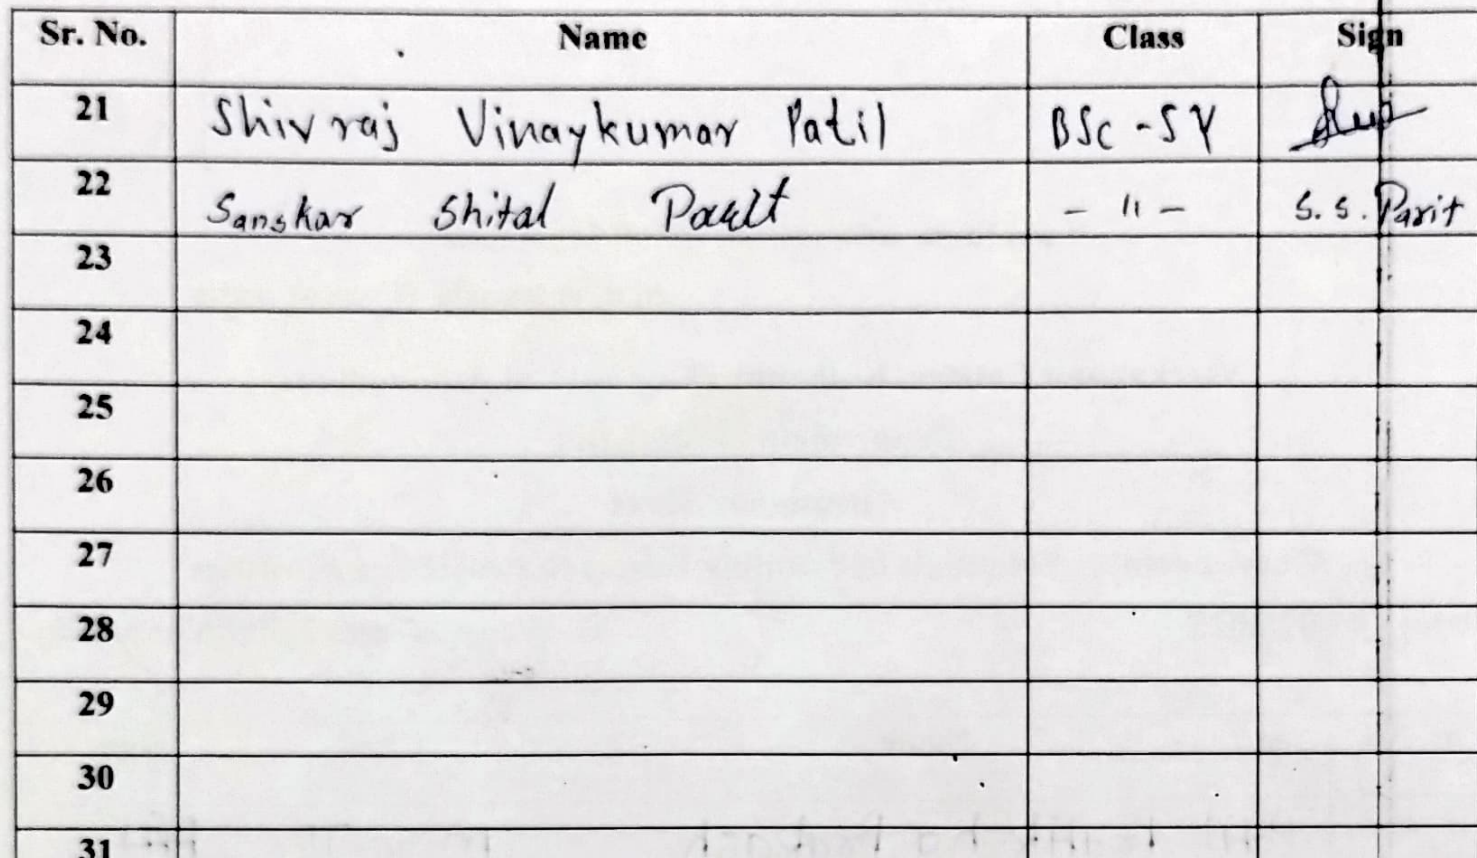 Sr. No. Name Class Sign
21 Shivraj Vinaykumar Patil BSc - SY
22 Sanskar Shital Parit - 11 - S. S. Parit
23
24
25
26
27
28
29
30
31